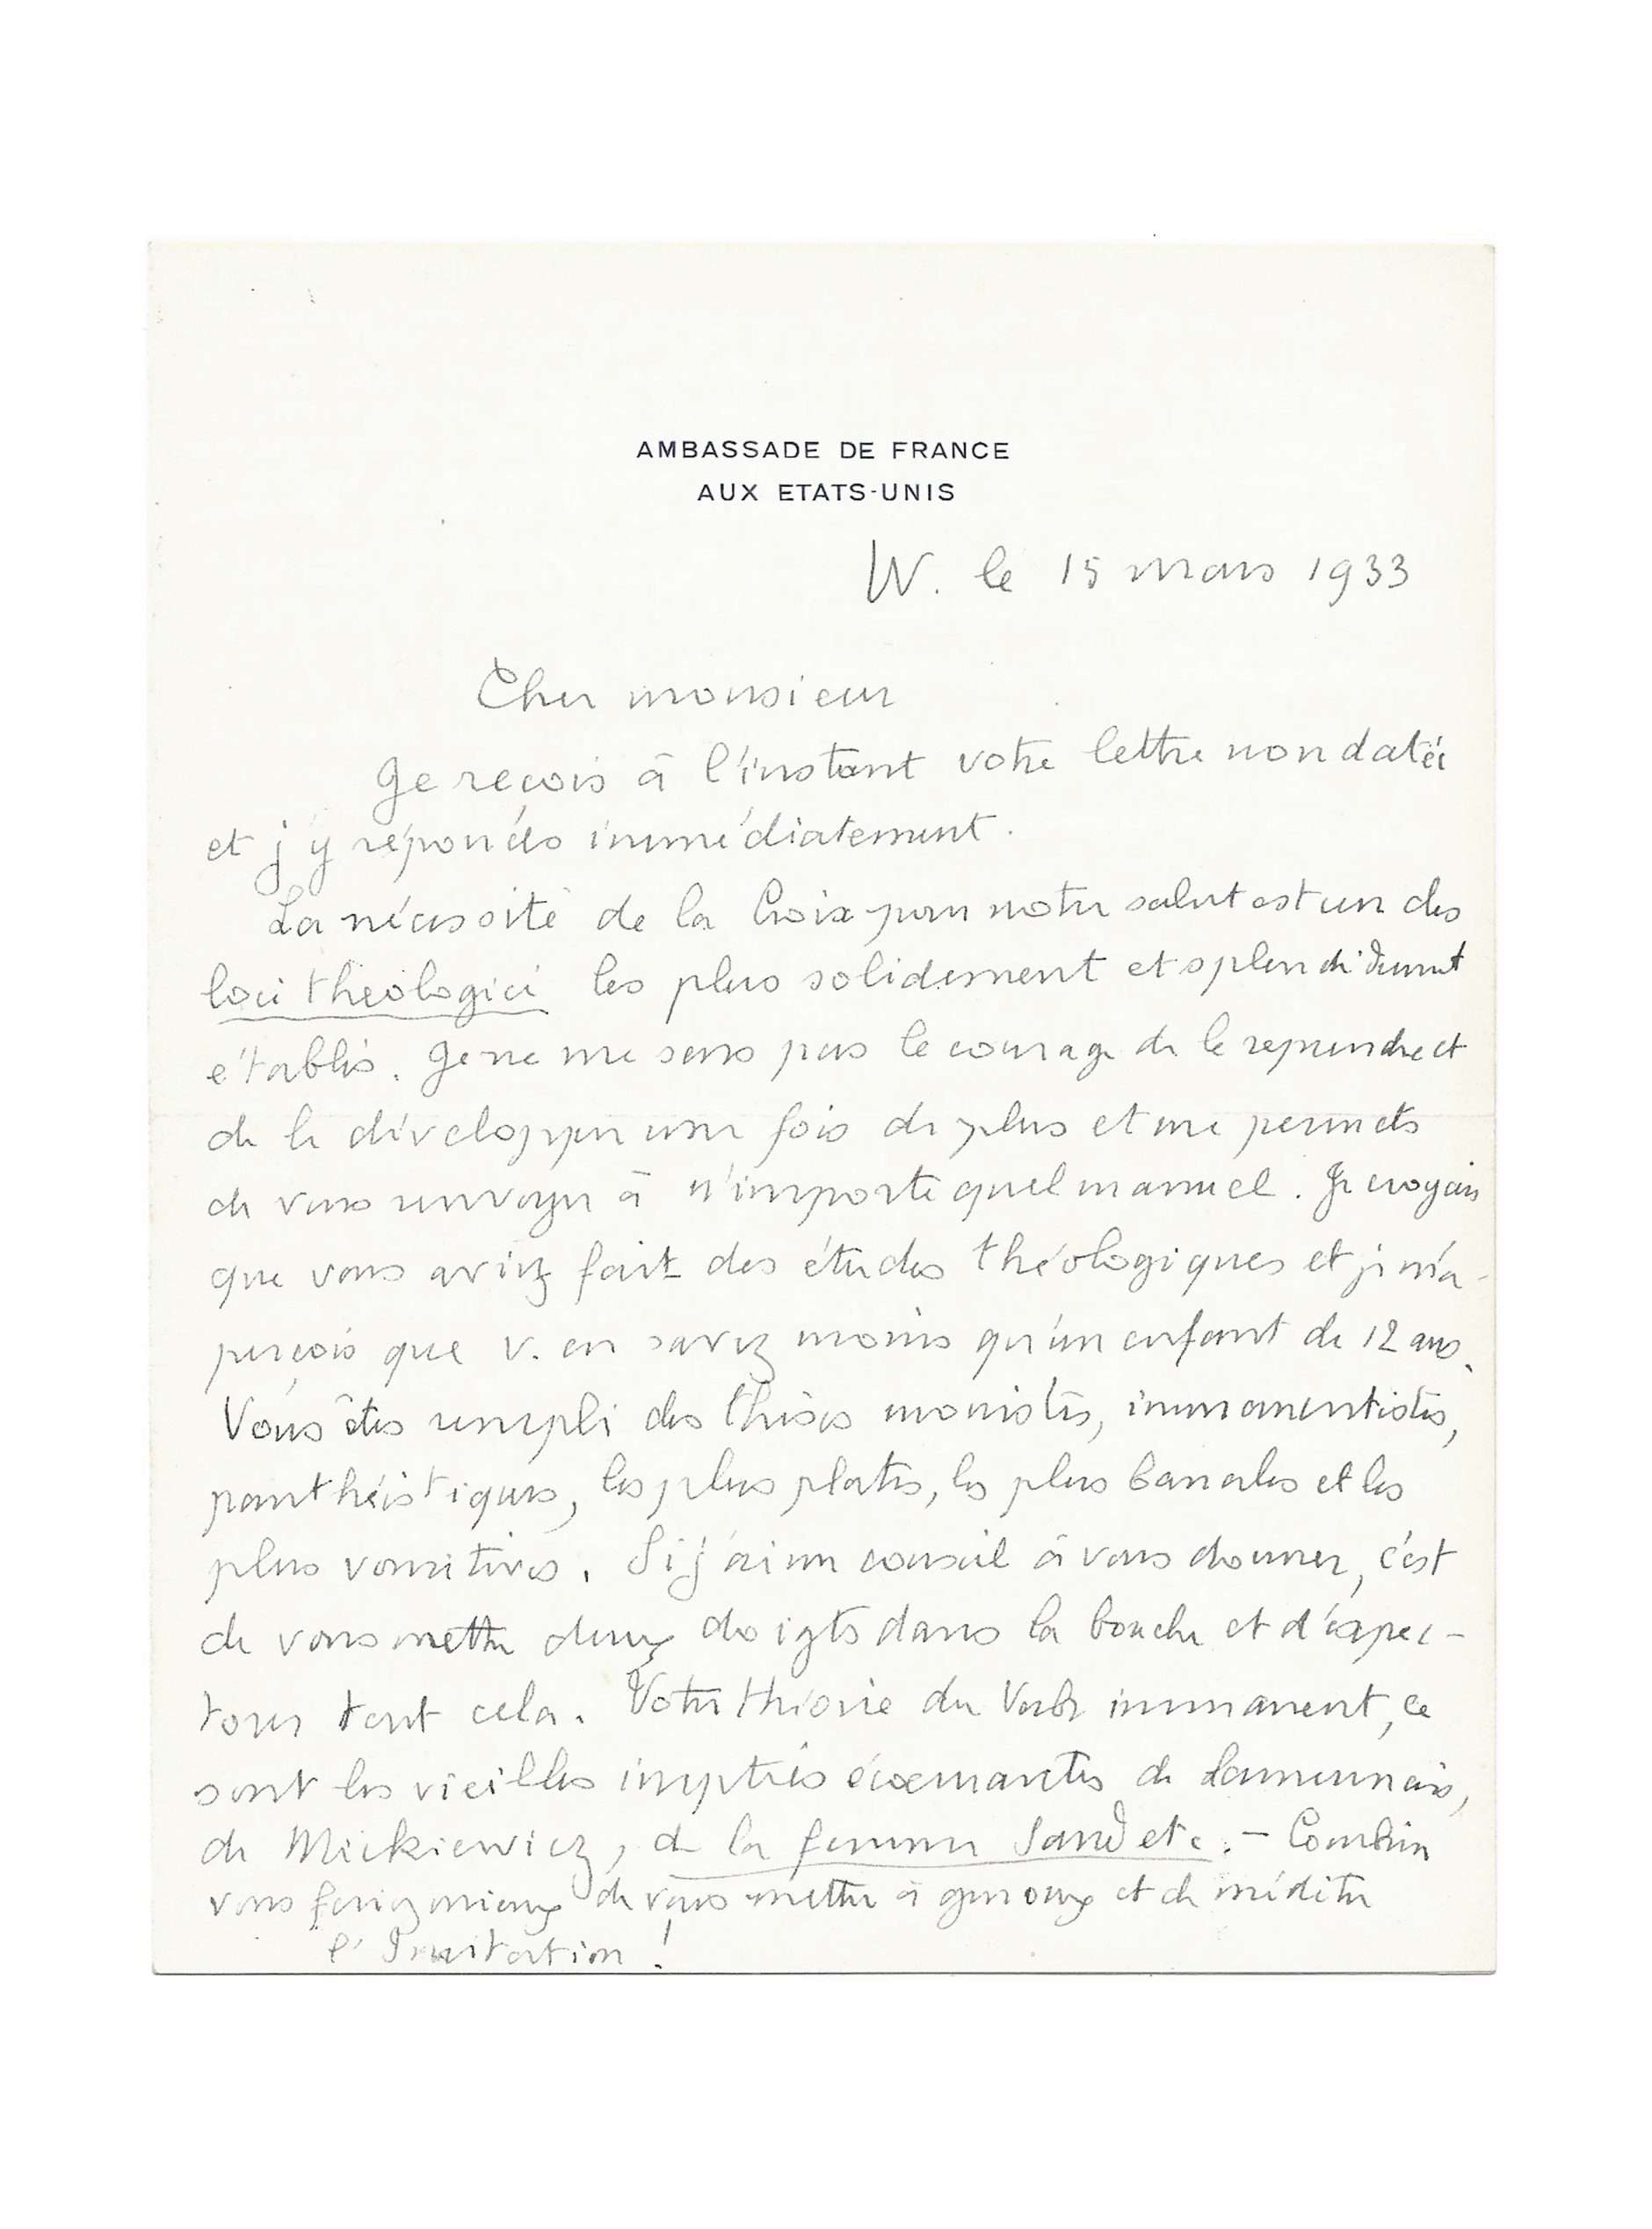 AMBASSADE DE FRANCE
AUX ETATS-UNIS
W. le 15 mars 1933
Cher monsieur
Je reçois à l'instant votre lettre non datée
et j'y réponds immédiatement.
La nécessité de la Croix pour notre salut est un des
loci theologici les plus solidement et splendidement
établis. Je ne me sens pas le courage de le reprendre et
de le développer une fois de plus et me permets
de vous renvoyer à n'importe quel manuel. Je croyais
que vous aviez fait des études théologiques et je m'a-
perçois que v. en savez moins qu'un enfant de 12 ans.
Vous êtes rempli des thèses monistes, immanentistes,
panthéistiques, les plus plates, les plus banales et les
plus vomitives. Si j'ai un conseil à vous donner, c'est
de vous mettre deux doigts dans la bouche et d'expec-
torer tout cela. Votre théorie du Verbe immanent, ce
sont les vieilles inepties écœurantes de Lamennais,
de Mickiewicz, de la femme Sand etc. - Combien
vous feriez mieux de vous mettre à genoux et de méditer
l'Imitation !